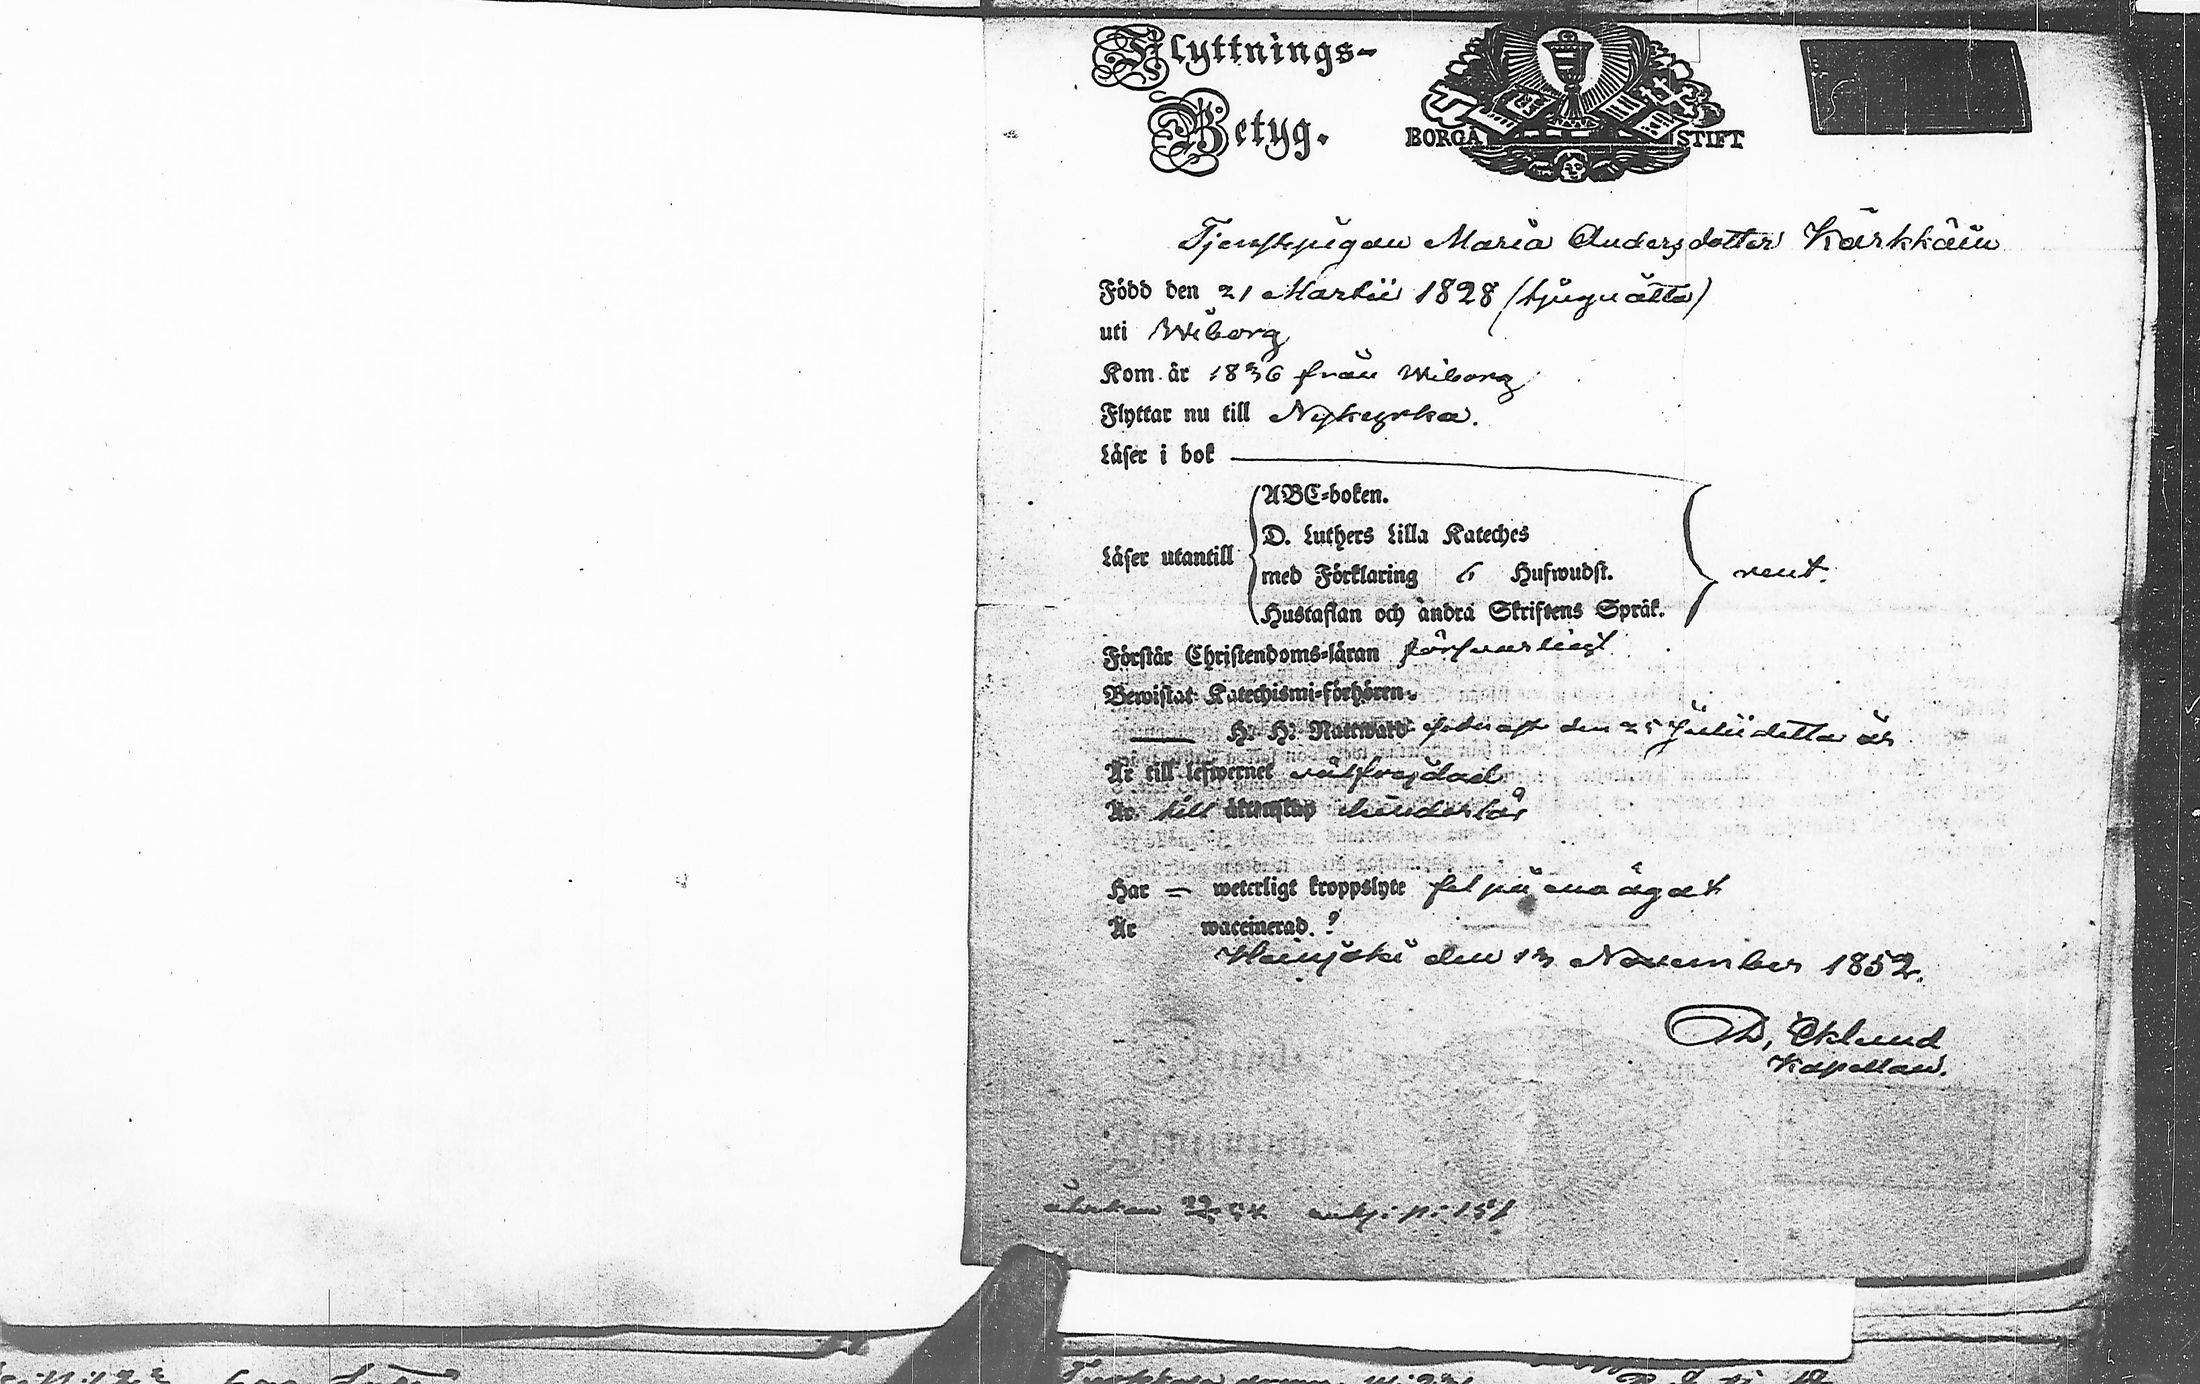 Flyttnings-
Betyg.
BORGÅ STIFT
Tjenstpigan Maria Andersdotter Kärkkäin
Född den 21 Martii 1828 (tjuguåtta)
uti Wiborg
Kom år 1836 från Wiborg
Flyttar nu till Nykyrka.
Läser i bok
Läser utantill
ABC-boken.
D. Luthers Lilla Kateches
med Förklaring 6 Hufwudst.
Hustaflan och andra Skriftens Språk.
rent.
Förstår Christendoms-läran försvarligt
Bewistat Katechismi-förhören.
H. H. Nattward den 25 Julii detta år
Är till lefwernet välfrejdad
Är till äktenskap hinderlös
Har — weterligt kroppslyte fel på ena ögat
Är waccinerad. ?
Heinjoki den 13 November 1852.
D. Eklund
Kapellan.
p: 151